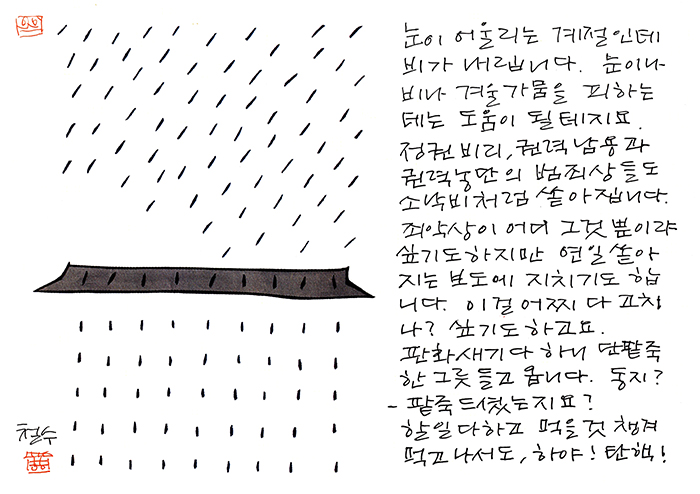 눈이 어울리는 계절인데
비가 내립니다. 눈이나
비나 겨울가뭄을 피하는
데는 도움이 될테지요.
정권비리, 권력남용과
권력농단의 범죄상들도
소낙비처럼 쏟아집니다.
죄악상이 어디 그것뿐이랴
싶기도하지만 연일쏟아
지는 보도에 지치기도 합
니다. 이걸 어찌 다 고치
나? 싶기도 하고요.
판화새기다 하니 단팥죽
한그릇 들고 옵니다. 동지?
- 팥죽 드셨는지요?
할일 다하고 먹을것 챙겨
먹고나서도, 하야! 탄핵!
철수